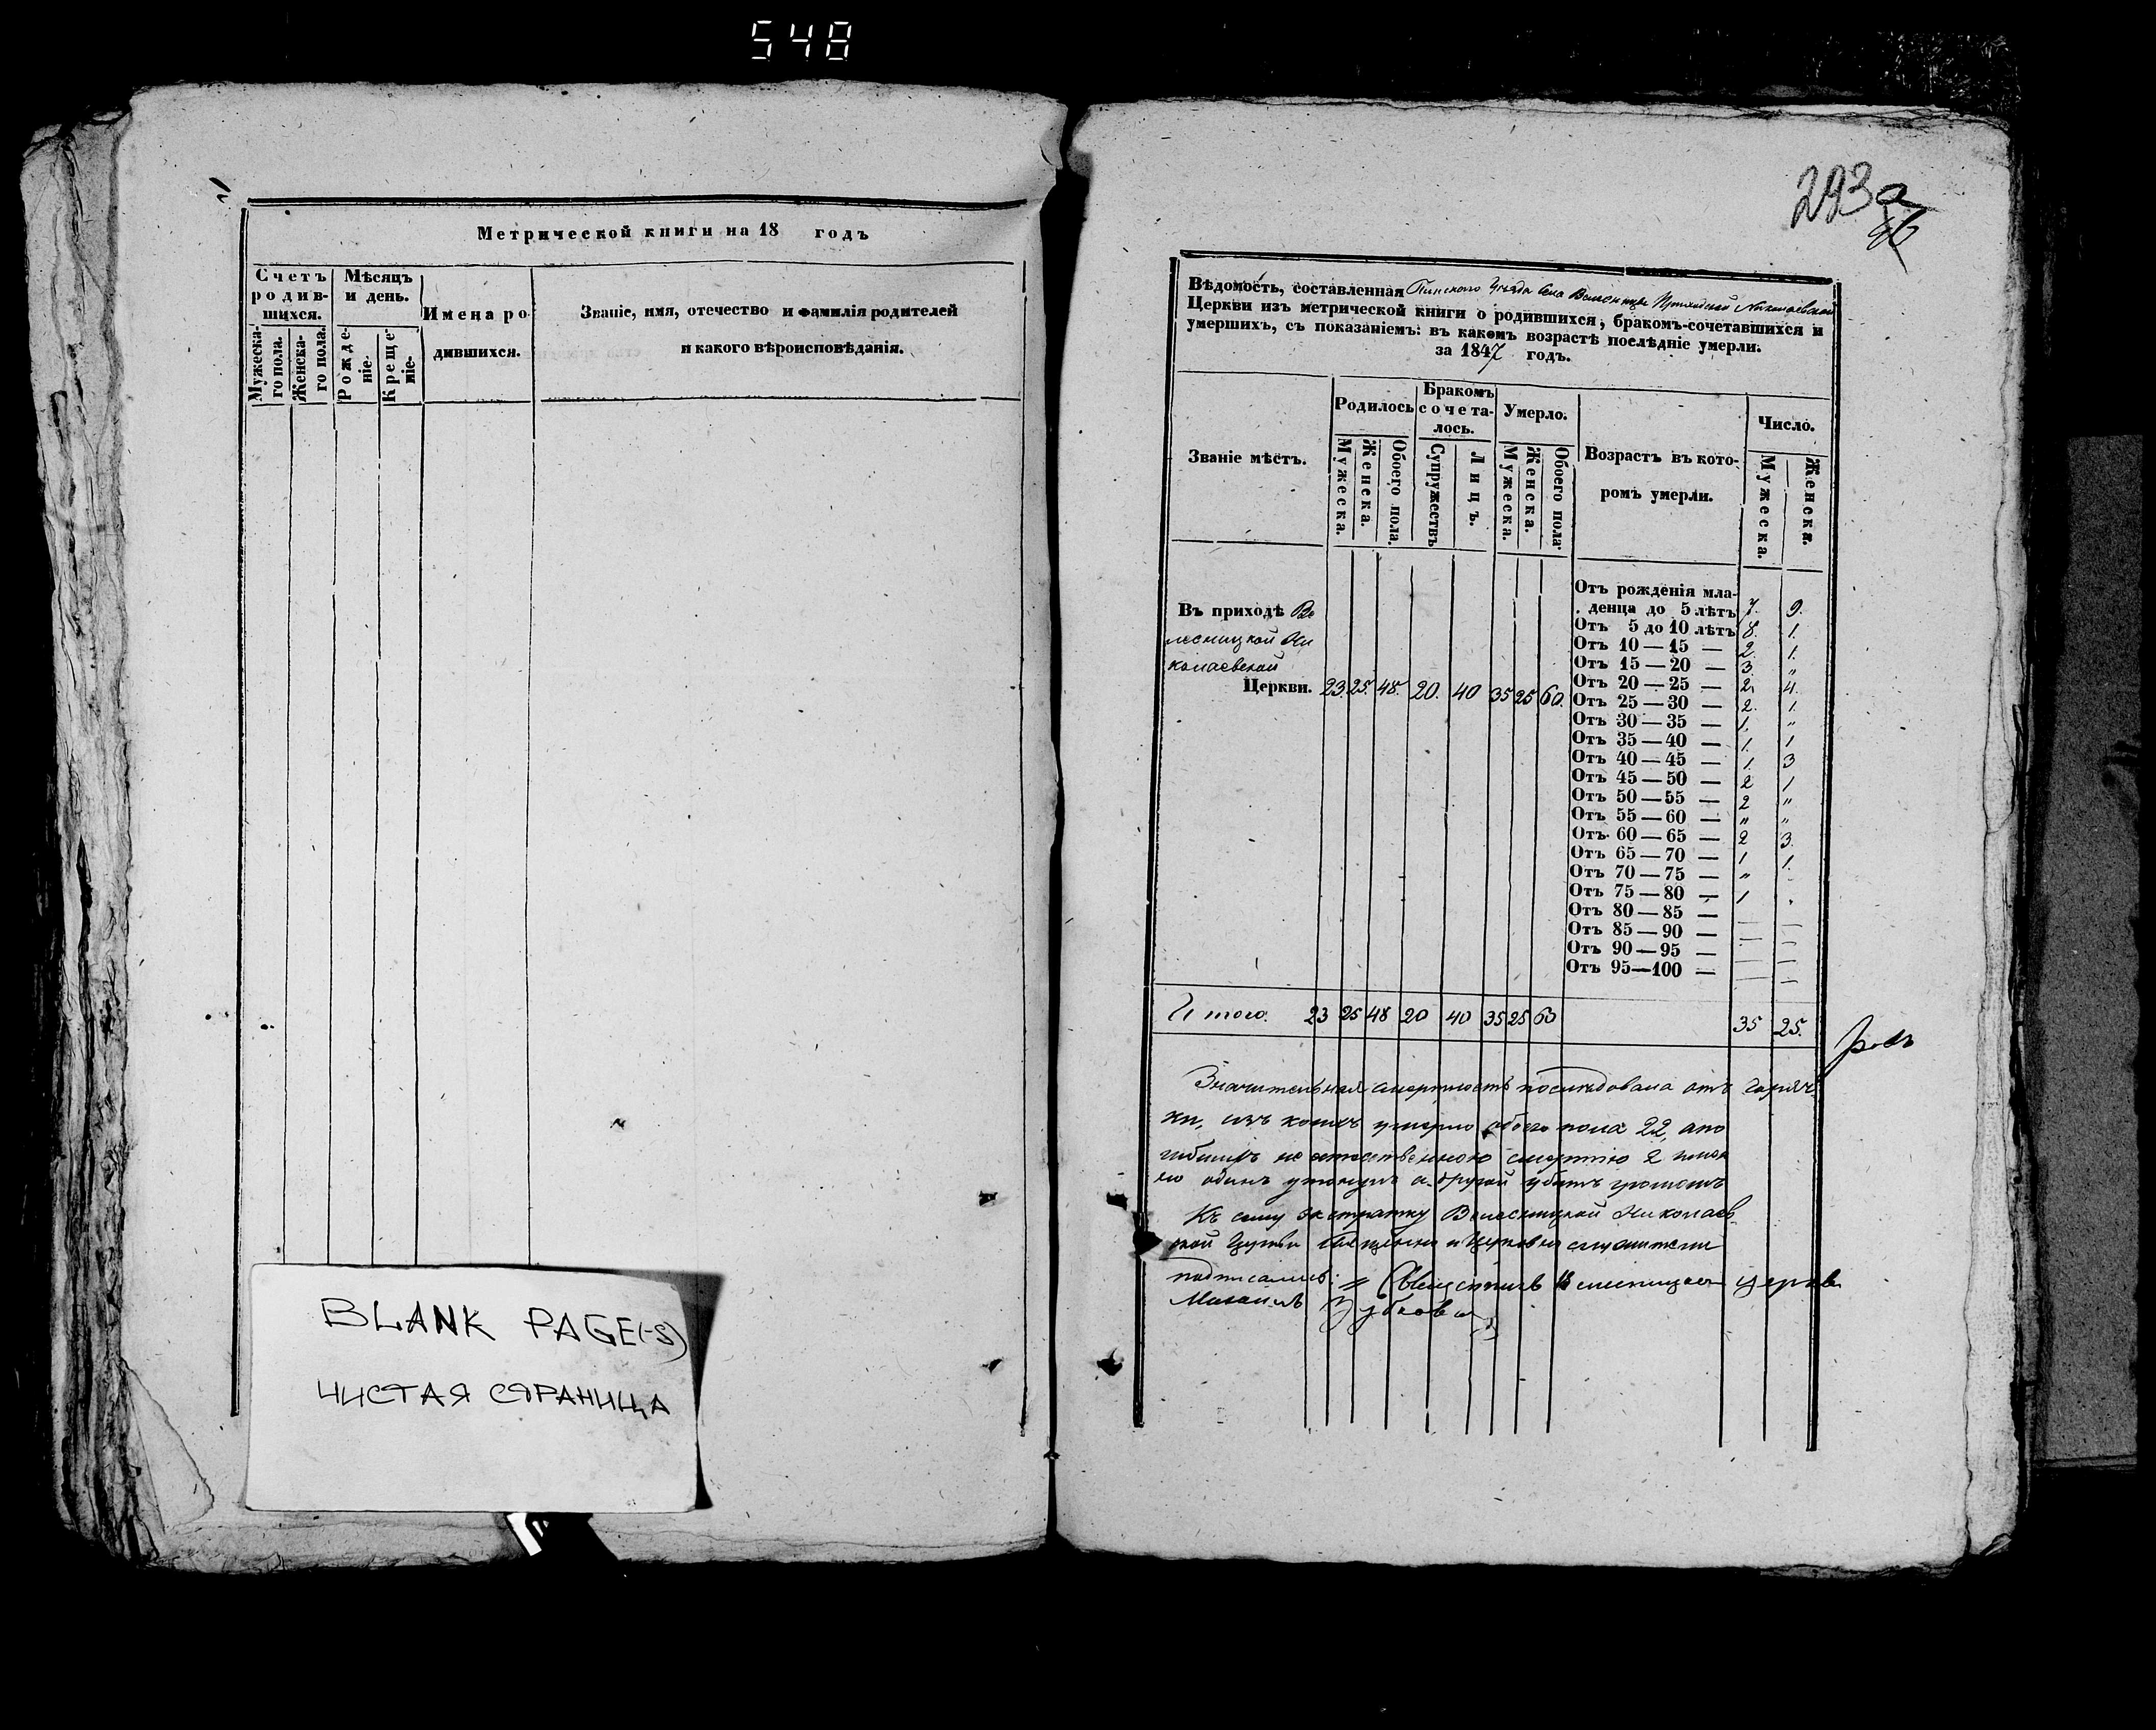 548
Метрической книги на 18 годъ
Счетъ родив-шихся.
Мѣсяцъ и день.
Имена родившихся.
Званіе, имя, отечество и фамилія родителей
и какого вѣроисповѣданія.
Мужеска-го пола.
Женска-го пола.
Рожде-ніе.
Креще-ніе.
BLANK PAGE(-S)
ЧИСТАЯ СТРАНИЦА
293а
Вѣдомость, составленная Пинского Уѣзда Села Приходской Николаевской
Церкви изъ метрической книги о родившихся, бракомъ-сочетавшихся и
умершихъ, съ показаніемъ: въ какомъ возрастѣ послѣдніе умерли.
за 1847 годъ.
Званіе мѣстъ.
Родилось
Бракомъ сочета-лось.
Умерло.
Возрастъ въ кото-ромъ умерли.
Число.
Мужеска.
Женска.
Обоего пола.
Супружествъ
Лицъ.
Мужеска.
Женска.
Обоего пола
Мужеска.
Женска.
Въ приходѣ Ве
лесницкой Ни
колаевской
Церкви. 23. 25. 48. 20. 40 35 25 60.
Отъ рожденія мла-
денца до 5 лѣтъ 7. 9.
Отъ 5 до 10 лѣтъ 8. 1.
Отъ 10 — 15 — 2. 1.
Отъ 15 — 20 — 3. "
Отъ 20 — 25 — 2. 4.
Отъ 25 — 30 — 2. 1.
Отъ 30 — 35 — 1. "
Отъ 35 — 40 — 1. 1
Отъ 40 — 45 — 1. 3
Отъ 45 — 50 — 2 1
Отъ 50 — 55 — 2 "
Отъ 55 — 60 — " "
Отъ 60 — 65 — 2 3.
Отъ 65 — 70 — 1 1.
Отъ 70 — 75 — "
Отъ 75 — 80 — 1
Отъ 80 — 85 —
Отъ 85 — 90 — — —
Отъ 90 — 95 — — —
Отъ 95—100 — — —
Итого. 23 25 48 20 40 35 25 60 35 25.
Значительная смертность послѣдовала отъ горяч
ки, изъ коихъ умерло обоего пола 22, а по
гибшихъ не естественною смертію 2
одинъ утонулъ а другой убитъ громомъ
Къ сему экстракту Велесницкой Николаев
ской Церкви священно и Церковно служители
подписались: Священникъ Велесницкой церкви
Михаилъ